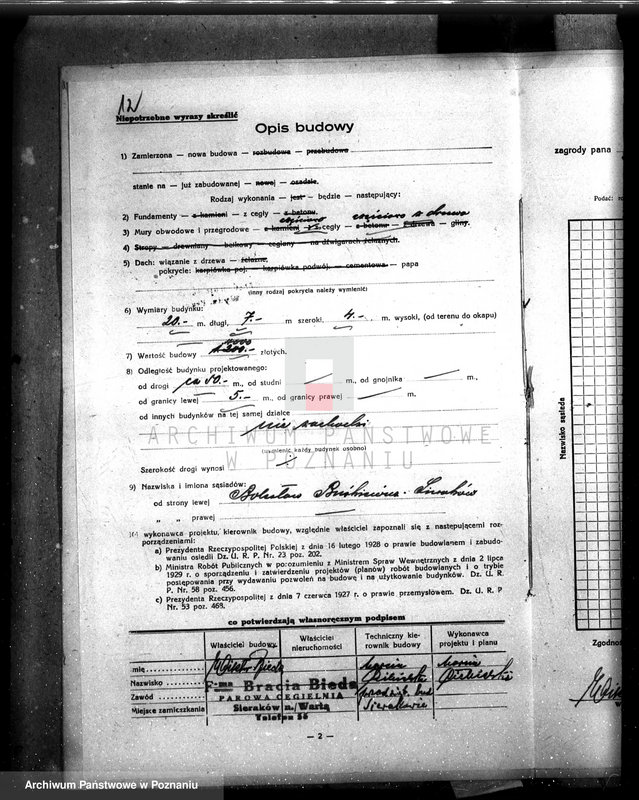 12
Niepotrzebne wyrazy skreślić
Opis budowy
1) Zamierzona — nowa budowa — rozbudowa — przebudowa
stanie na — już zabudowanej — nowej — osadzie.
Rodzaj wykonania — jest — będzie — następujący:
2) Fundamenty — z kamieni — z cegły — z betonu.
częściowo częściowo z drzewa
3) Mury obwodowe i przegrodowe — z kamieni — z cegły — z betonu — z drzewa — gliny.
4) Stropy — drewniany — belkowy — ceglany — na dźwigarach żelaznych.
5) Dach: wiązanie z drzewa — żelazne,
pokrycie: karpiówka poj. — karpiówka podwój. — cementowa — papa
(inny rodzaj pokrycia należy wymienić)
6) Wymiary budynku:
20.- m. długi, 7.- m szeroki, 4.- m. wysoki, (od terenu do okapu)
7) Wartość budowy 1200.- złotych.
8) Odległość budynku projektowanego:
od drogi ca 50.- m., od studni m., od gnojnika m.,
od granicy lewej 5.- m., od granicy prawej m.
od innych budynków na tej samej działce nie zachodzi
(wymienić każdy budynek osobno)
Szerokość drogi wynosi
9) Nazwiska i imiona sąsiadów:
od strony lewej Bolesław Sieraków
„ „ prawej
wykonawca projektu, kierownik budowy, względnie właściciel zapoznali się z następującemi roz-
porządzeniami:
a) Prezydenta Rzeczypospolitej Polskiej z dnia 16 lutego 1928 o prawie budowlanem i zabudo-
waniu osiedli Dz. U. R. P. Nr. 23 poz. 202.
b) Ministra Robót Publicznych w porozumieniu z Ministrem Spraw Wewnętrznych z dnia 2 lipca
1929 r. o sporządzeniu i zatwierdzeniu projektów (planów) robót budowlanych i o trybie
postępowania przy wydawaniu pozwoleń na budowę i na użytkowanie budynków. Dz. U. R.
P. Nr. 58 poz. 456.
c) Prezydenta Rzeczypospolitej z dnia 7 czerwca 1927 r. o prawie przemysłowem. Dz. U. R. P
Nr. 53 poz. 468.
co potwierdzają własnoręcznym podpisem
Właściciel budowy
Właściciel nieruchomości
Techniczny kie-
rownik budowy
Wykonawca
projektu i planu
Imię
Marcin
Marcin
Nazwisko
Zawód
bud
Miejsce zamieszkania
Sieraków
F-ma Bracia Bieda
PAROWA CEGIELNIA
Sieraków n./Wartą
Telefon 56
— 2 —
zagrody pana
Podać:
Nazwisko sąsiada
Zgodność
ARCHIWUM PAŃSTWOWE
W POZNANIU
Archiwum Państwowe w Poznaniu